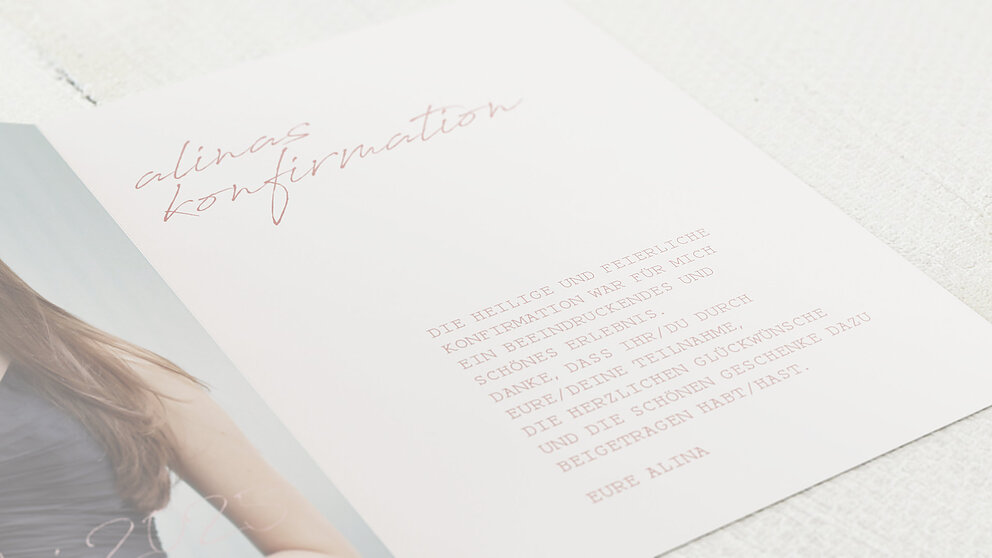 alinas
konfirmation
DIE HEILIGE UND FEIERLICHE
KONFIRMATION WAR FÜR MICH
EIN BEEINDRUCKENDES UND
SCHÖNES ERLEBNIS.
DANKE, DASS IHR/DU DURCH
EURE/DEINE TEILNAHME,
DIE HERZLICHEN GLÜCKWÜNSCHE
UND DIE SCHÖNEN GESCHENKE DAZU
BEIGETRAGEN HABT/HAST.
EURE ALINA
2025